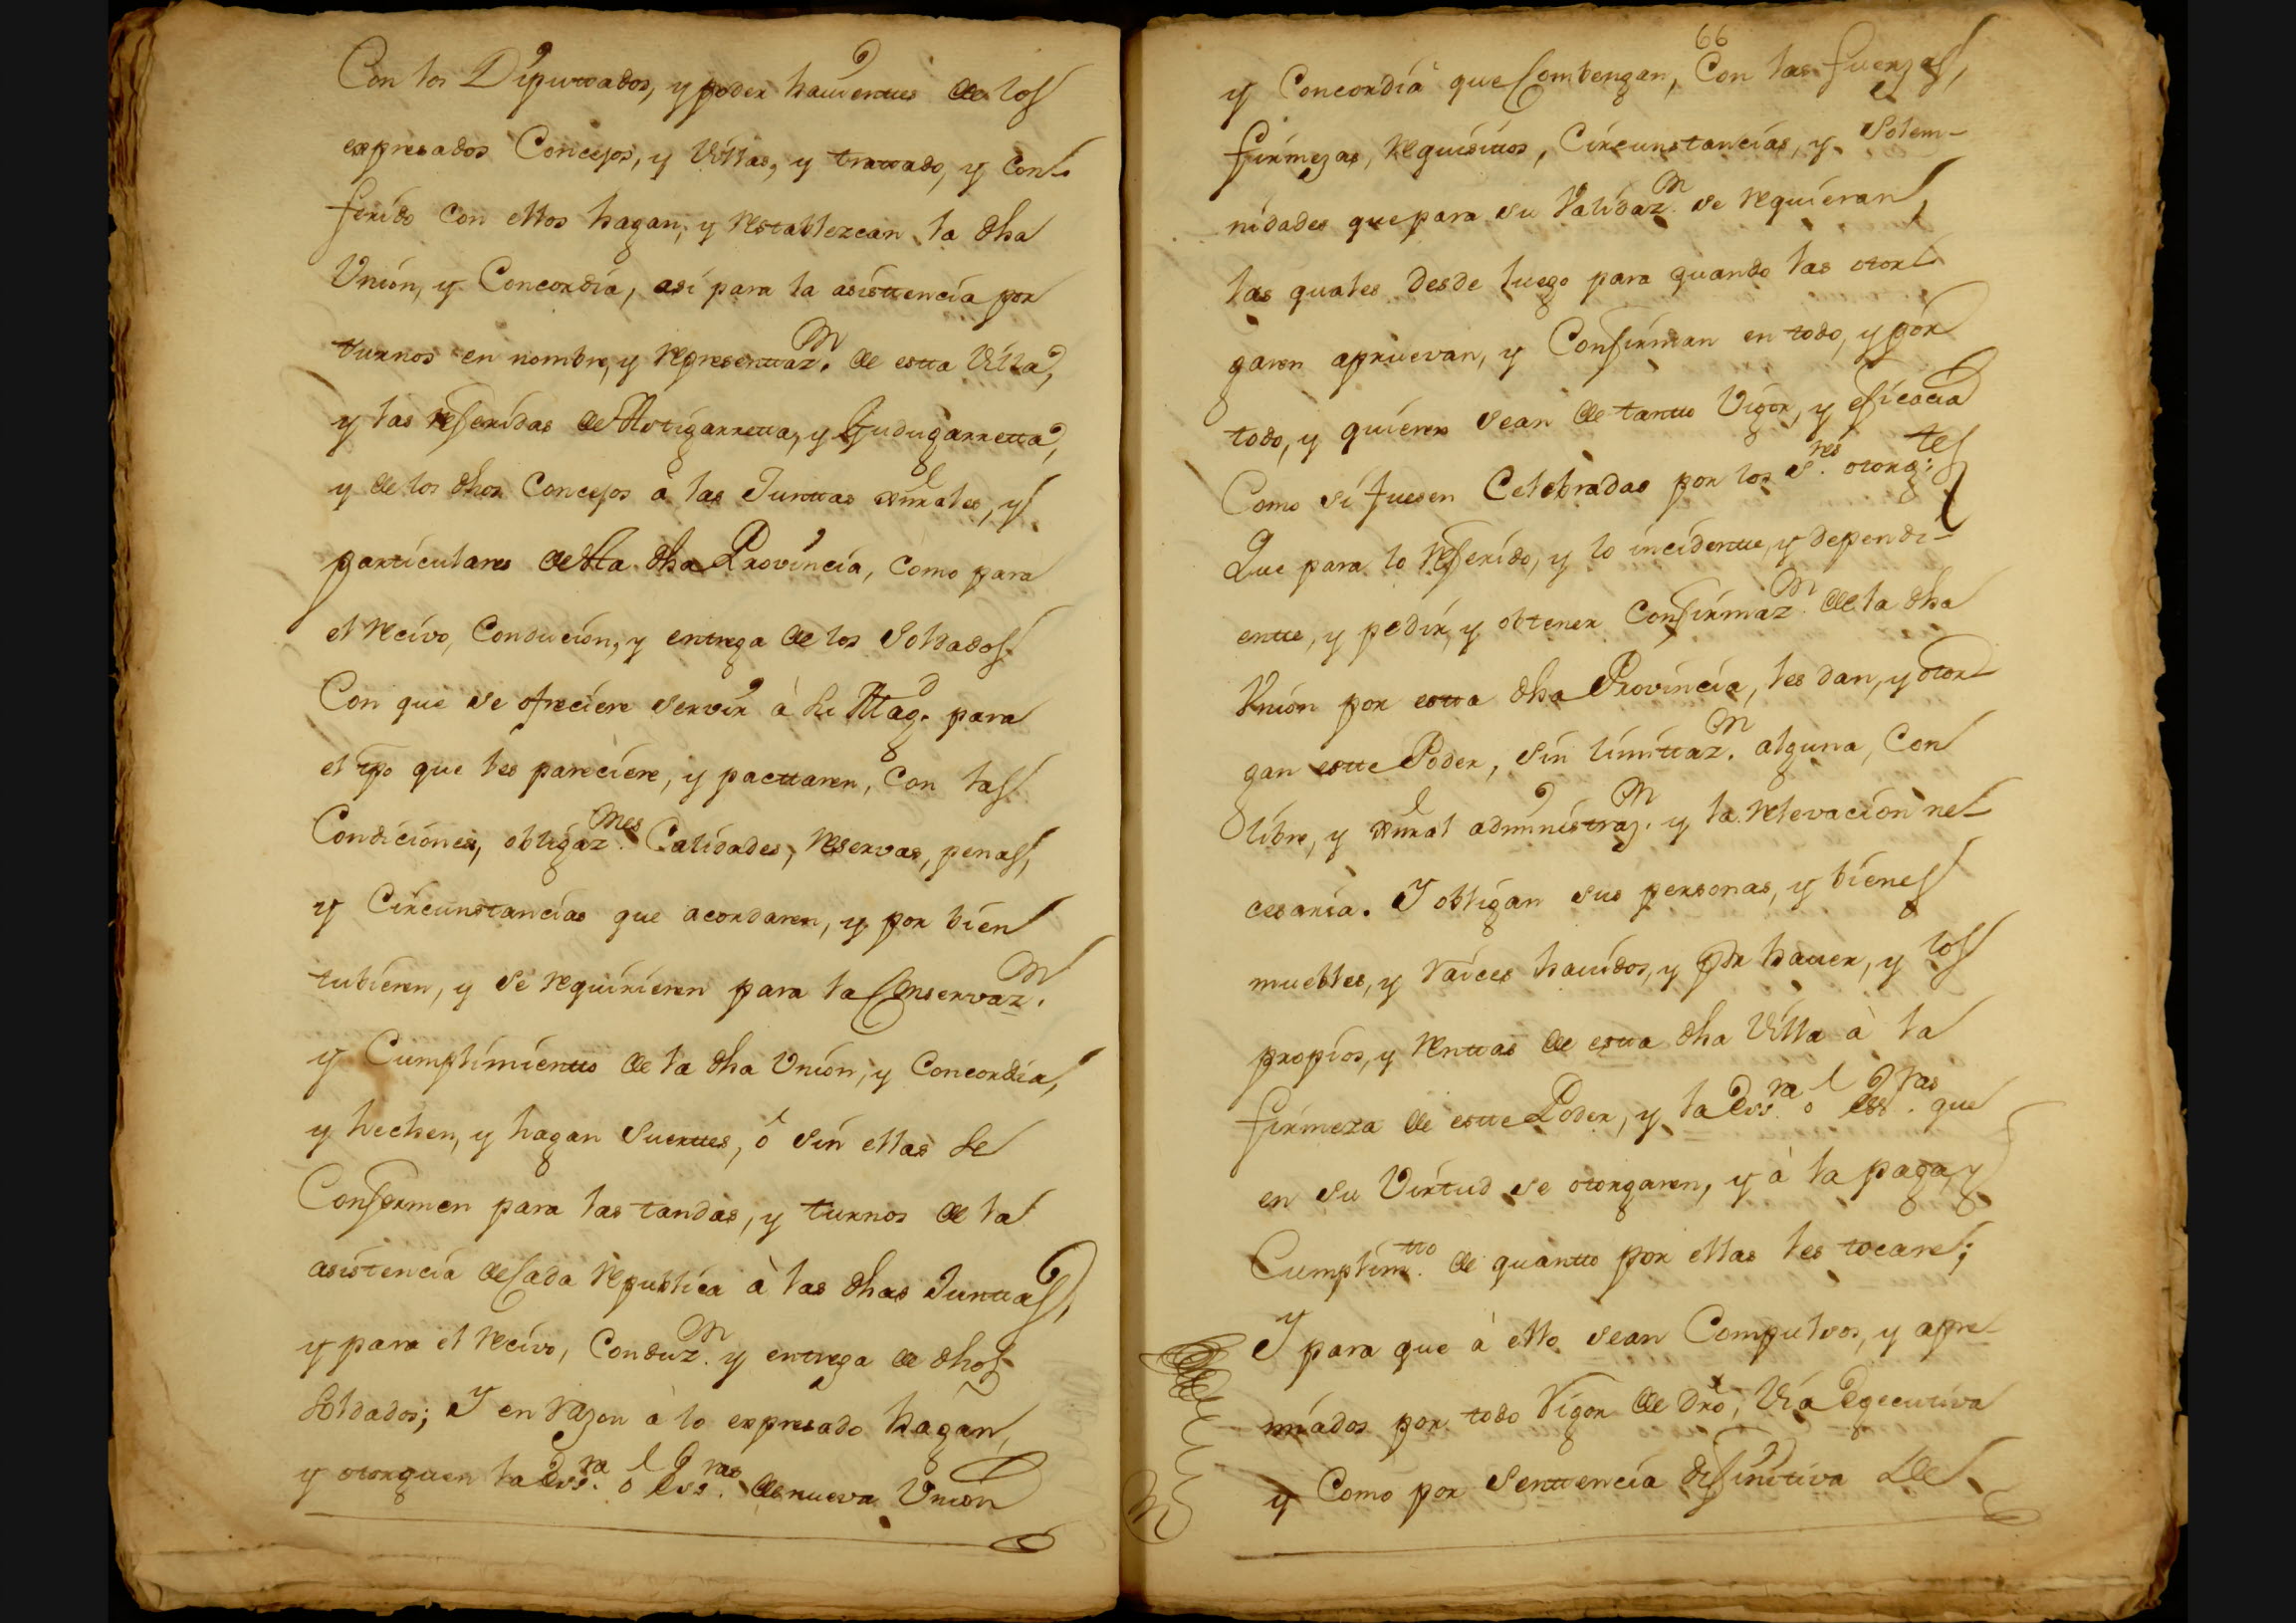 Con los Diputtados, y poder havienttes de los
expresados Concejos, y Villas, y trattado, y con-
ferido con ellos hagan, y restablezcan la dha
Union, y Concordia, asi para la asisttencia por
turnos en nombre, y representtaz.n de estta Villa,
y las referidas de Astigarretta, y Gudugarretta,
y de los dhos Concejos à las Junttas xnrales, y
particulares de Sta dha Provincia, como para
el recivo, Conducion, y entrega de los Soldados
Con que se ofreciere servir à Su Mag.d para
el tpo que les pareciere, y pacttaren, con las
Condiciones, obligaz.nes Calidades, reservas, penas,
y Circunstancias que acordaren, y por bien
tubieren, y se requirieren para la Conservaz.n
y Cumplimientto de la dha Union, y Concordia,
y hechen, y hagan Suerttes, ó sin ellas se
Conformen para las tandas, y turnos de la
asistencia de Cada republica à las dhas Junttas,
y para el recivo, Conduz.n y entrega de dhos
Soldados; Y en razon à lo expresado hagan,
y otorguen la Ess.ra ó Ess.ras de nueva Union
66
y Concordia que Combengan, Con las fuerzas,
firmezas, requisittos, Circunstancias, y Solem-
nidades que para su Validaz.n se requieran,
las quales desde luego para quando las otor-
garen apruevan, y Confirman en todo, y por
todo, y quieren sean de tantto Vigor, y eficacia
Como si fuesen Celebradas por los s.res otorg.tes
Que para lo referido, y lo incidentte, y dependi-
entte, y pedir, y obtener Confirmaz.n de la dha
Union por estta dha Provincia, les dan, y otor-
gan estte Poder, sin limittaz.n alguna, Con
libre, y xnral administraz.n y la relevacion ne-
cesaria. Y obligan sus personas, y bienes
muebles, y raices havidos, y por haver, y los
propios, y renttas de estta dha Villa à la
firmeza de estte Poder, y la Ess.ra ó Ess.ras que
en su Virtud se otorgaren, y à la paga, y
Cumplim.tto de quantto por ellas les tocare;
Y para que à ello sean Compulsos, y apre-
miados por todo rigor de dro, Via Egecutiva
y Como por Senttencia difinitiva de